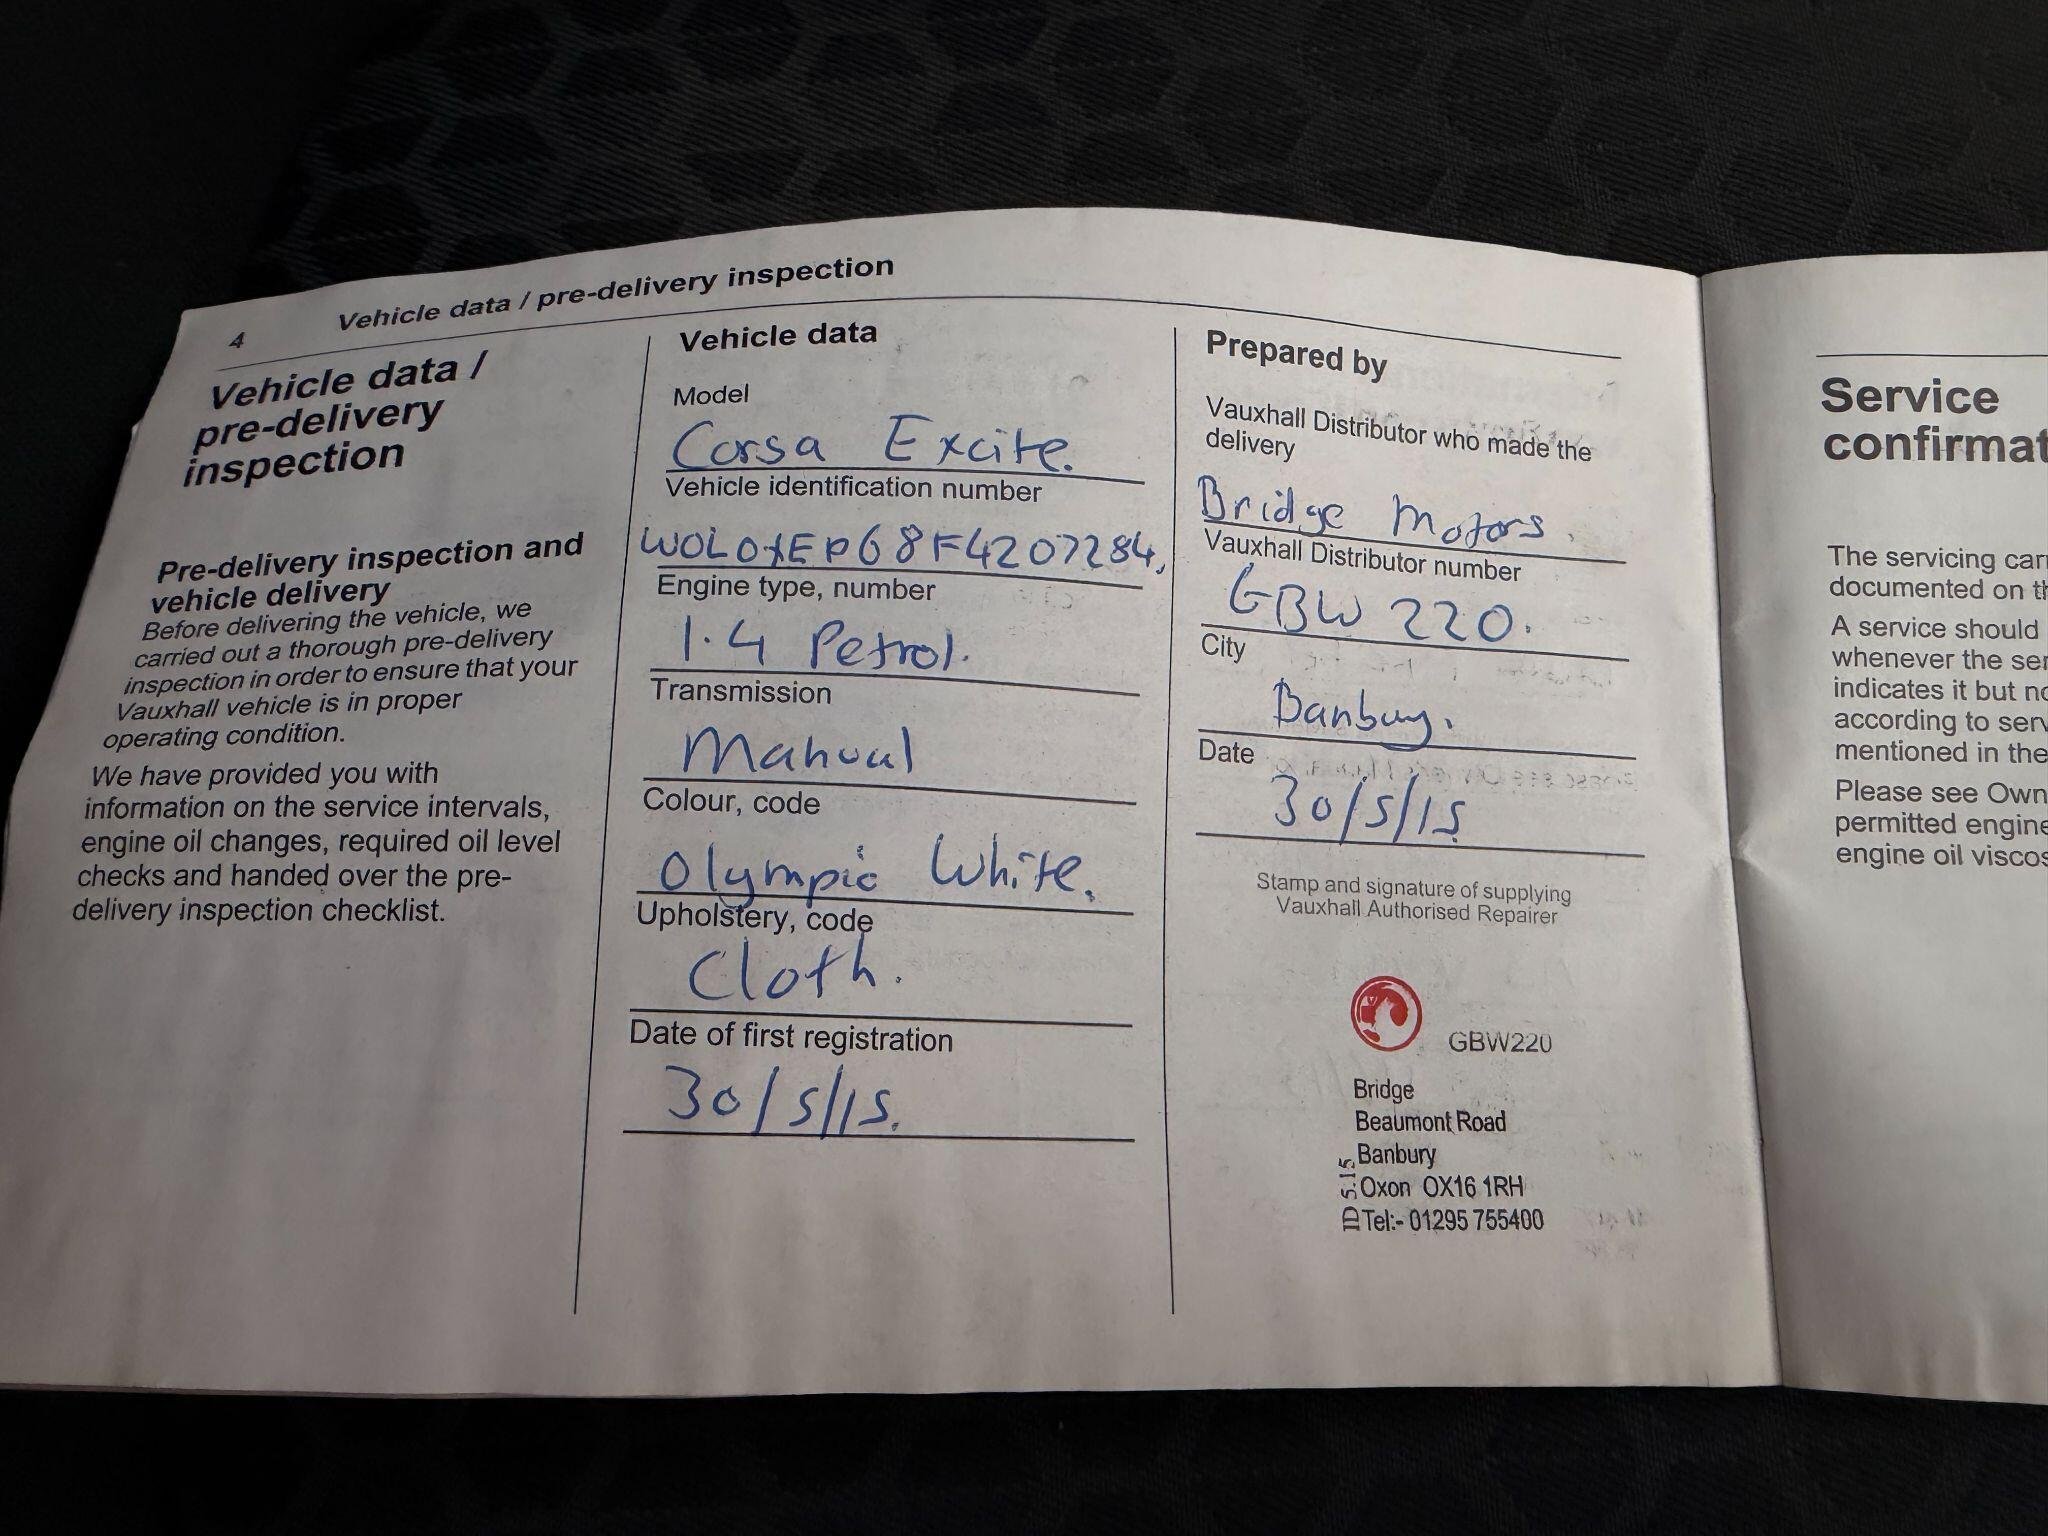 4 Vehicle data / pre-delivery inspection
Vehicle data /
pre-delivery
inspection
Pre-delivery inspection and
vehicle delivery
Before delivering the vehicle, we
carried out a thorough pre-delivery
inspection in order to ensure that your
Vauxhall vehicle is in proper
operating condition.
We have provided you with
information on the service intervals,
engine oil changes, required oil level
checks and handed over the pre-
delivery inspection checklist.
Vehicle data
Model
Corsa Excite.
Vehicle identification number
W0L0XEP68F4207284,
Engine type, number
1.4 Petrol.
Transmission
Manual
Colour, code
Olympic White.
Upholstery, code
Cloth.
Date of first registration
30/5/15.
Prepared by
Vauxhall Distributor who made the
delivery
Bridge Motors.
Vauxhall Distributor number
GBW 220.
City
Banbury.
Date
30/5/15
Stamp and signature of supplying
Vauxhall Authorised Repairer
GBW220
Bridge
Beaumont Road
Banbury
Oxon OX16 1RH
Tel:- 01295 755400
Service
confirmat
The servicing carr
documented on th
A service should
whenever the ser
indicates it but no
according to serv
mentioned in the
Please see Own
permitted engine
engine oil viscos